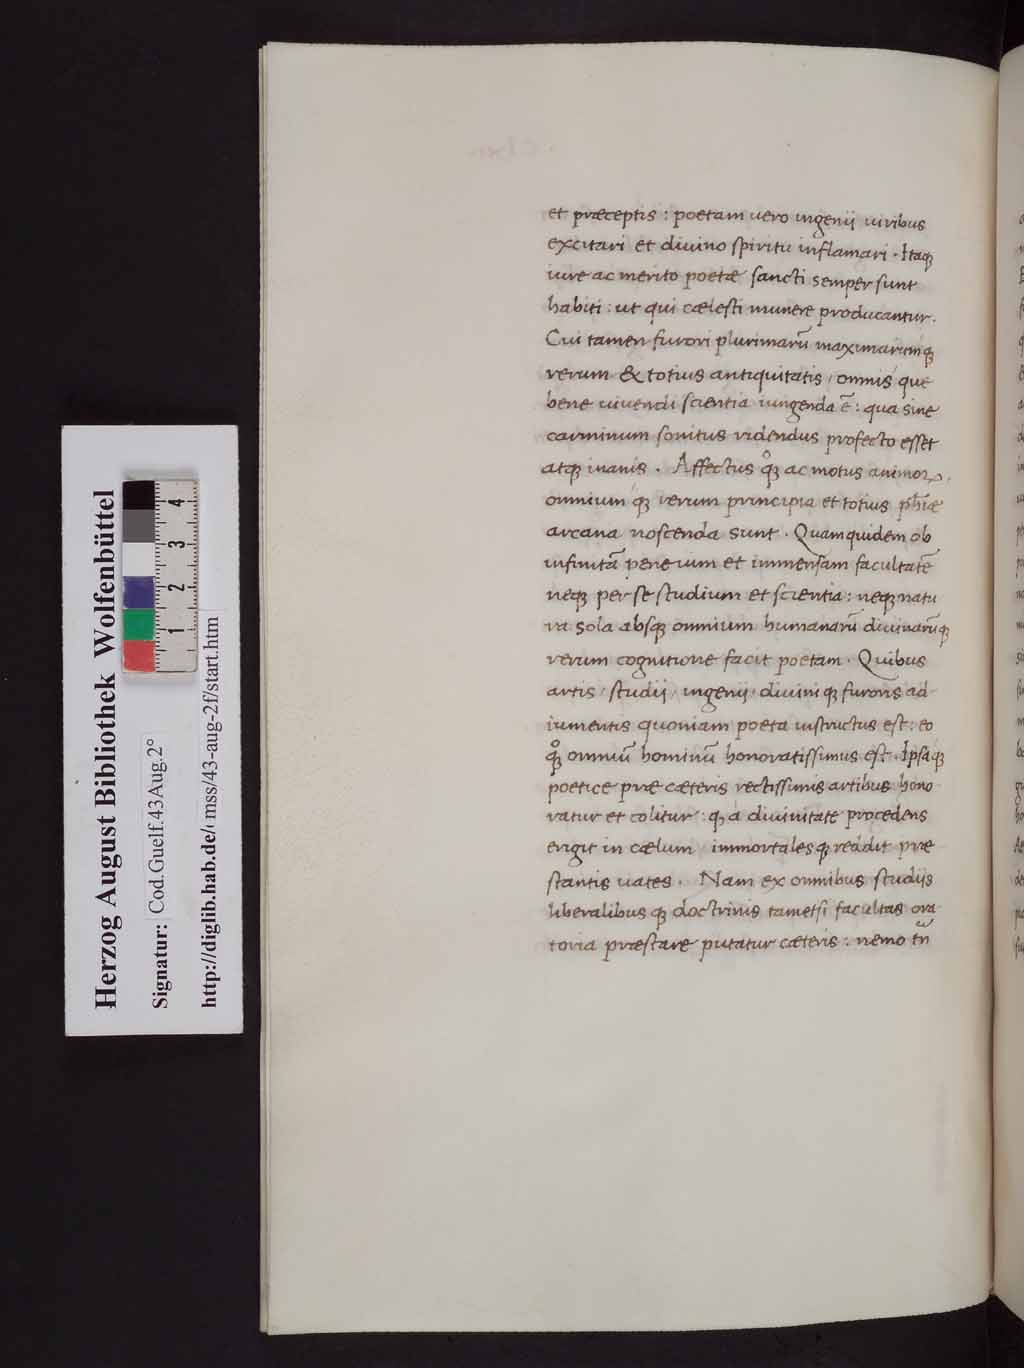 et præceptis : poetam vero ingenij viribus
excitari et divino spiritu inflamari . Itaqꝫ
iure ac merito poetæ sancti semper sunt
habiti : ut qui cælesti munere producantur .
Cui tamen furori plurimarū maximarumqꝫ
rerum & totius antiquitatis / omnis que
bene vivendi scientia iungenda ē : qua sine
carminum sonitus videndus profecto esset
atqꝫ inanis . Affectus qͦꝫ ac motus animoꝝ .
omnium qꝫ rerum principia et totius ph̄iæ
arcana noscenda sunt . Quamquidem ob
infinitā pene ium et immensam facultatē
neqꝫ per se studium et scientia : neqꝫ natu
ra sola absqꝫ omnium humanarū divinarūqꝫ
rerum cognitione facit poetam . Quibus
artis / studij / ingenij / diviniqꝫ furoris ad
iumentis quoniam poeta instructus est : eo
qͦꝫ omniū hominū honoratissimus est . Ipsaqꝫ
poetice præ cæteris rectissimis artibus hono
ratur et colitur : qꝫ a divinitate procedens
erigit in cælum / immortalesqꝫ reddit præ
stantis uates . Nam ex omnibus studijs
liberalibus qꝫ doctrinis tametsi facultas ora
toria præstare putatur cæteris : nemo tn̄
Herzog August Bibliothek Wolfenbüttel
Signatur: Cod.Guelf.43Aug.2°
http://diglib.hab.de/ mss/43-aug-2f/start.htm
1 2 3 4